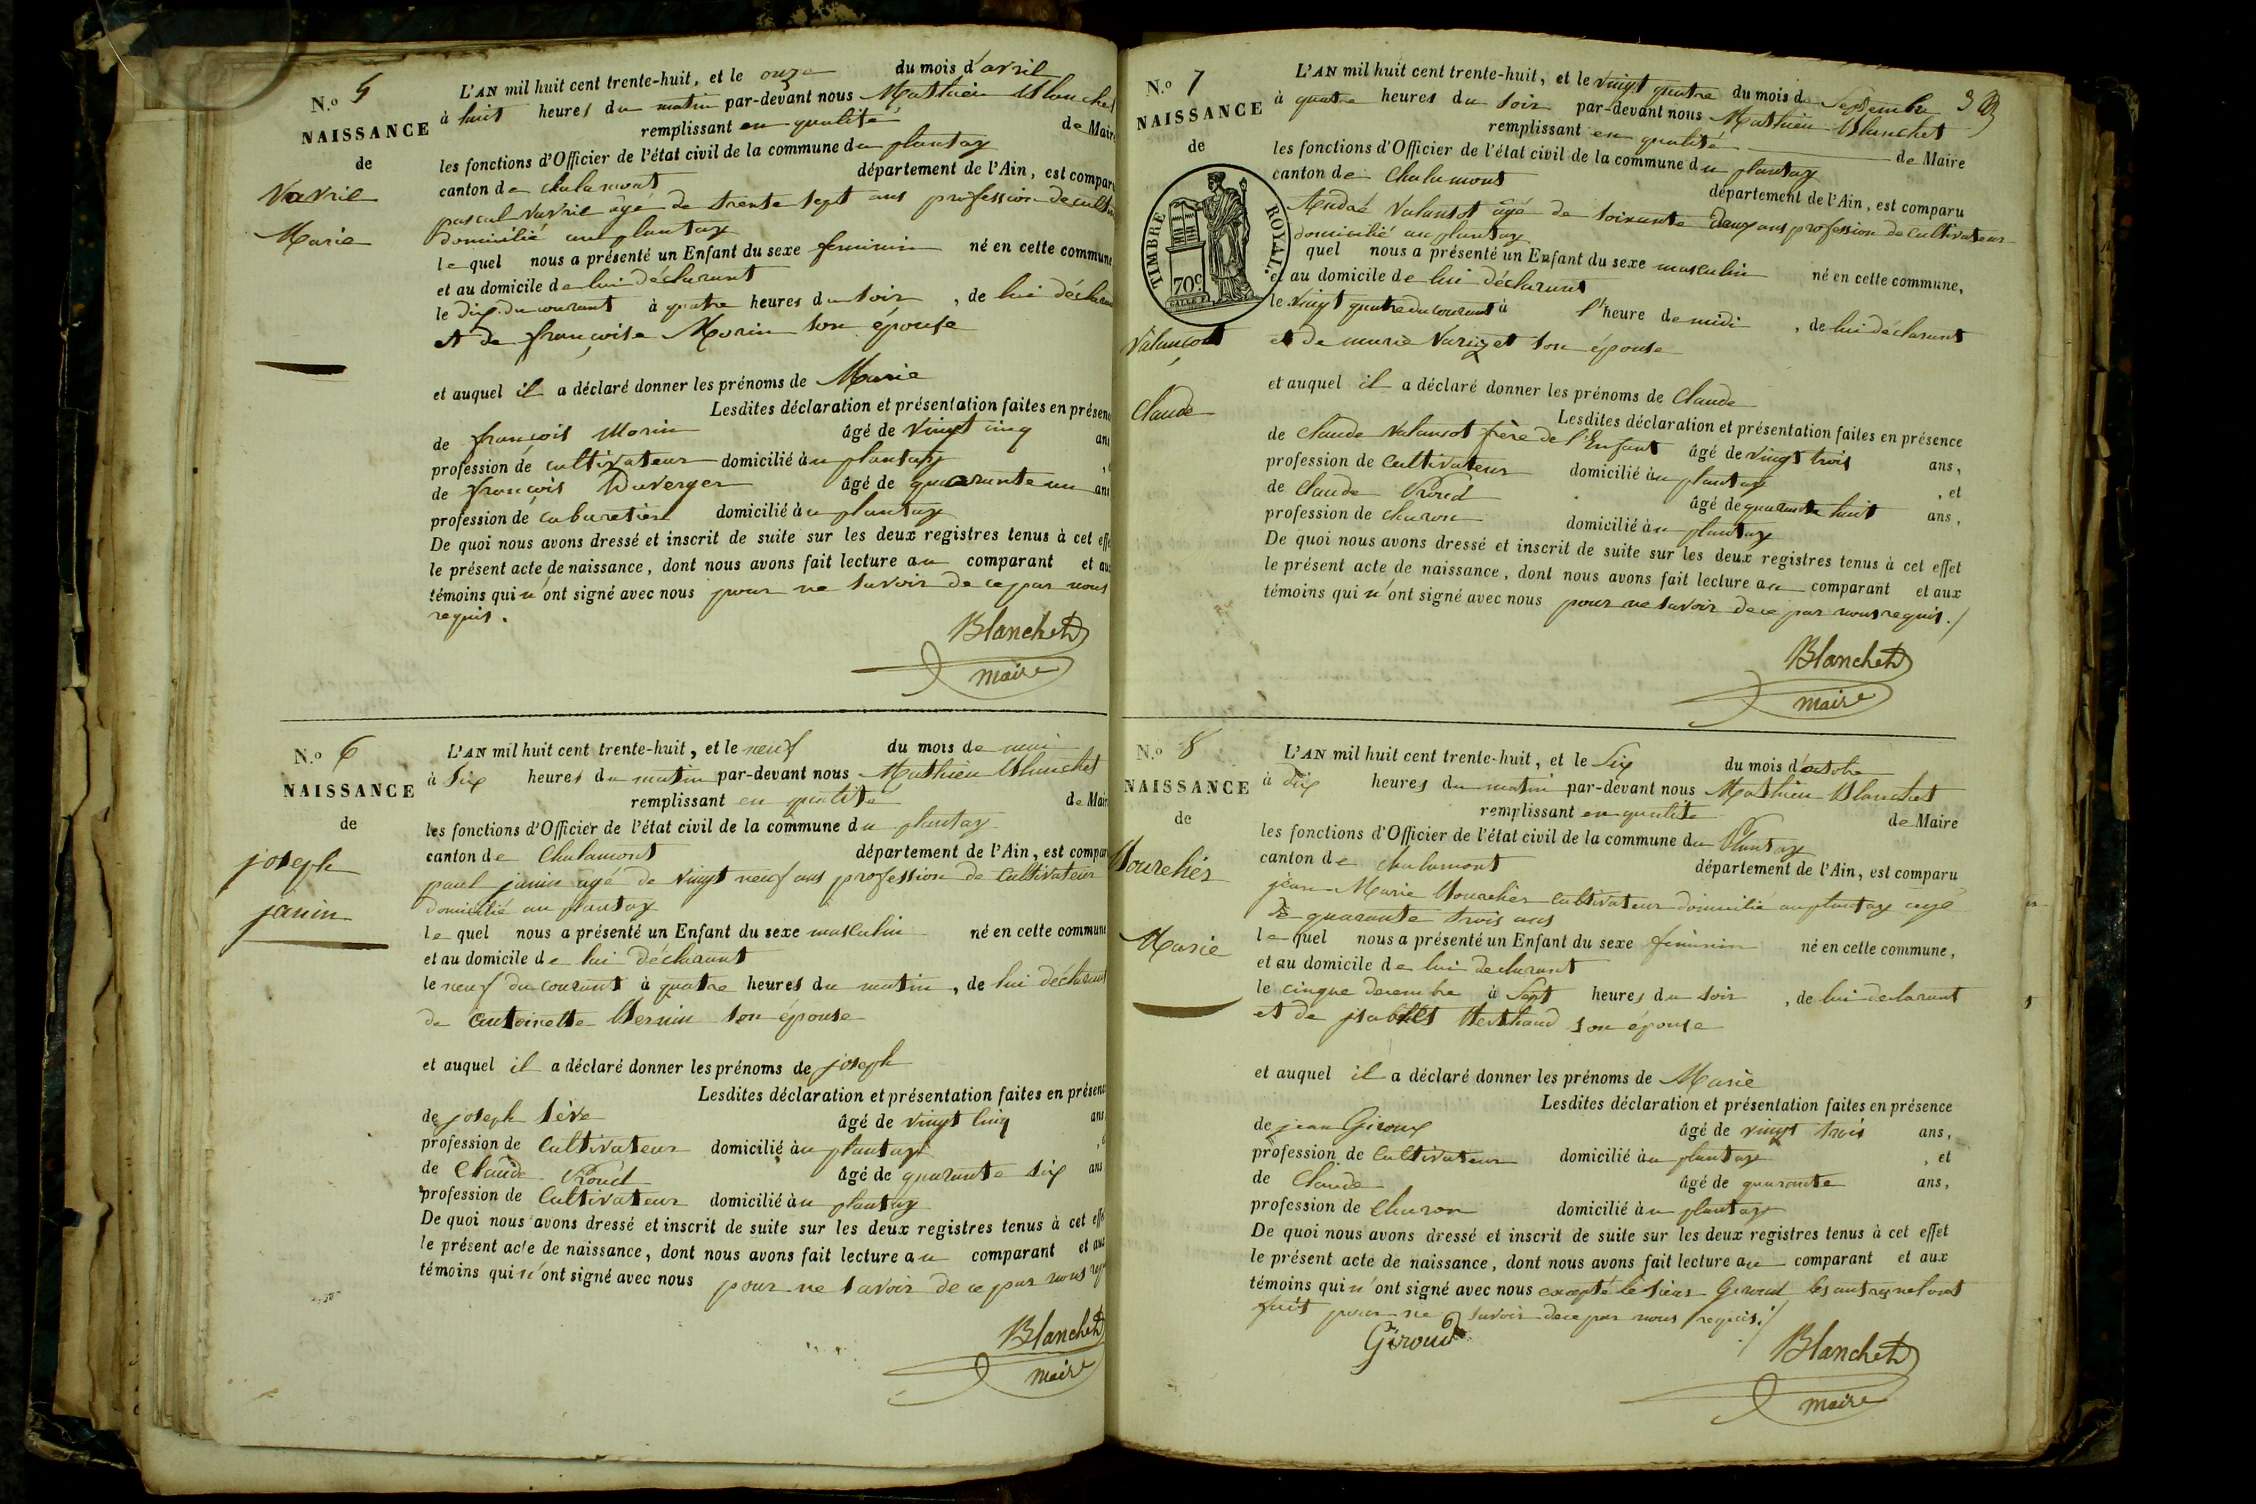 N.o 5
NAISSANCE
de
Vavril
Marie
L'AN mil huit cent trente-huit, et le onze du mois d'avril
à huit heures du matin par-devant nous Mathieu Blanchet
remplissant en qualité de Maire
les fonctions d'Officier de l'état civil de la commune du plantay
canton de chalamont département de l'Ain, est comparu
pascal Vavril âgé de trente sept ans profession de cultiv
domicilié au plantay
le quel nous a présenté un Enfant du sexe feminin né en cette commune
et au domicile de lui déclarant
le dix du courant à quatre heures du soir, de lui déclarant
et de françoise Morin son épouse
et auquel il a déclaré donner les prénoms de Marie
Lesdites déclaration et présentation faites en présence
de françois Morin âgé de vingt cinq ans
profession de cultivateur domicilié au plantay
de françois Duverger âgé de quarante un ans
profession de cabaretier domicilié au plantay
De quoi nous avons dressé et inscrit de suite sur les deux registres tenus à cet effet
le présent acte de naissance, dont nous avons fait lecture au comparant et aux
témoins qui n'ont signé avec nous pour ne savoir de ce par nous
requis.
Blanchet
maire
N.o 6
NAISSANCE
de
joseph
janin
L'AN mil huit cent trente-huit, et le neuf du mois de mai
à six heures du matin par-devant nous Mathieu Blanchet
remplissant en qualité de Maire
les fonctions d'Officier de l'état civil de la commune du plantay
canton de Chalamont département de l'Ain, est comparu
paul janin agé de vingt neuf ans profession de cultivateur
domicilié au plantay
le quel nous a présenté un Enfant du sexe masculin né en cette commune
et au domicile de lui déclarant
le neuf du courant à quatre heures du matin, de lui déclarant
de antoinette Bernin son épouse
et auquel il a déclaré donner les prénoms de joseph
Lesdites déclaration et présentation faites en présence
de joseph Sève âgé de vingt cinq ans
profession de Cultivateur domicilié au plantay
de Claude Proud âgé de quarante six ans
profession de Cultivateur domicilié au plantay
De quoi nous avons dressé et inscrit de suite sur les deux registres tenus à cet effet
le présent acte de naissance, dont nous avons fait lecture au comparant et aux
témoins qui n'ont signé avec nous pour ne savoir de ce par nous req
Blanchet
maire
N.o 7
NAISSANCE
de
TIMBRE ROYAL.
70c
Valançot
Claude
L'AN mil huit cent trente-huit, et le vingt quatre du mois de Septembre 3
à quatre heures du soir par-devant nous Mathieu Blanchet
remplissant en qualité de Maire
les fonctions d'Officier de l'état civil de la commune du plantay
canton de Chalamont département de l'Ain, est comparu
André Valansot âgé de soixante deux ans profession de cultivateur
domicilié au plantay
quel nous a présenté un Enfant du sexe masculin né en cette commune,
et au domicile de lui déclarant
le vingt quatre du courant à l'heure de midi, de lui déclarant
et de marie Variguet son épouse
et auquel il a déclaré donner les prénoms de Claude
Lesdites déclaration et présentation faites en présence
de Claude Valansot frère de l'Enfant âgé de vingt trois ans,
profession de Cultivateur domicilié au plantay, et
de Claude Proud âgé de quarante huit ans,
profession de charon domicilié au plantay
De quoi nous avons dressé et inscrit de suite sur les deux registres tenus à cet effet
le présent acte de naissance, dont nous avons fait lecture au comparant et aux
témoins qui n'ont signé avec nous pour ne savoir de ce par nous requis./
Blanchet
maire
N.o 8
NAISSANCE
de
Bourchés
Marie
L'AN mil huit cent trente-huit, et le six du mois d'octobre
à dix heures du matin par-devant nous Mathieu Blanchet
remplissant en qualité de Maire
les fonctions d'Officier de l'état civil de la commune du Plantay
canton de chalamont département de l'Ain, est comparu
jean-Marie Bourchés cultivateur domicilié au plantay agé
de quarante trois ans
le quel nous a présenté un Enfant du sexe feminin né en cette commune,
et au domicile de lui declarant
le cinque decembre à sept heures du soir, de lui declarant
et de Berthaud son épouse
et auquel il a déclaré donner les prénoms de Marie
Lesdites déclaration et présentation faites en présence
de jean Giroux âgé de vingt trois ans,
profession de Cultivateur domicilié au plantay, et
de Claude âgé de quarante ans,
profession de Charon domicilié au plantay
De quoi nous avons dressé et inscrit de suite sur les deux registres tenus à cet effet
le présent acte de naissance, dont nous avons fait lecture au comparant et aux
témoins qui n'ont signé avec nous excepté le sieur Giroud les autres ne l'ont
fait pour ne savoir de ce par nous requis./
Giroud
Blanchet
maire